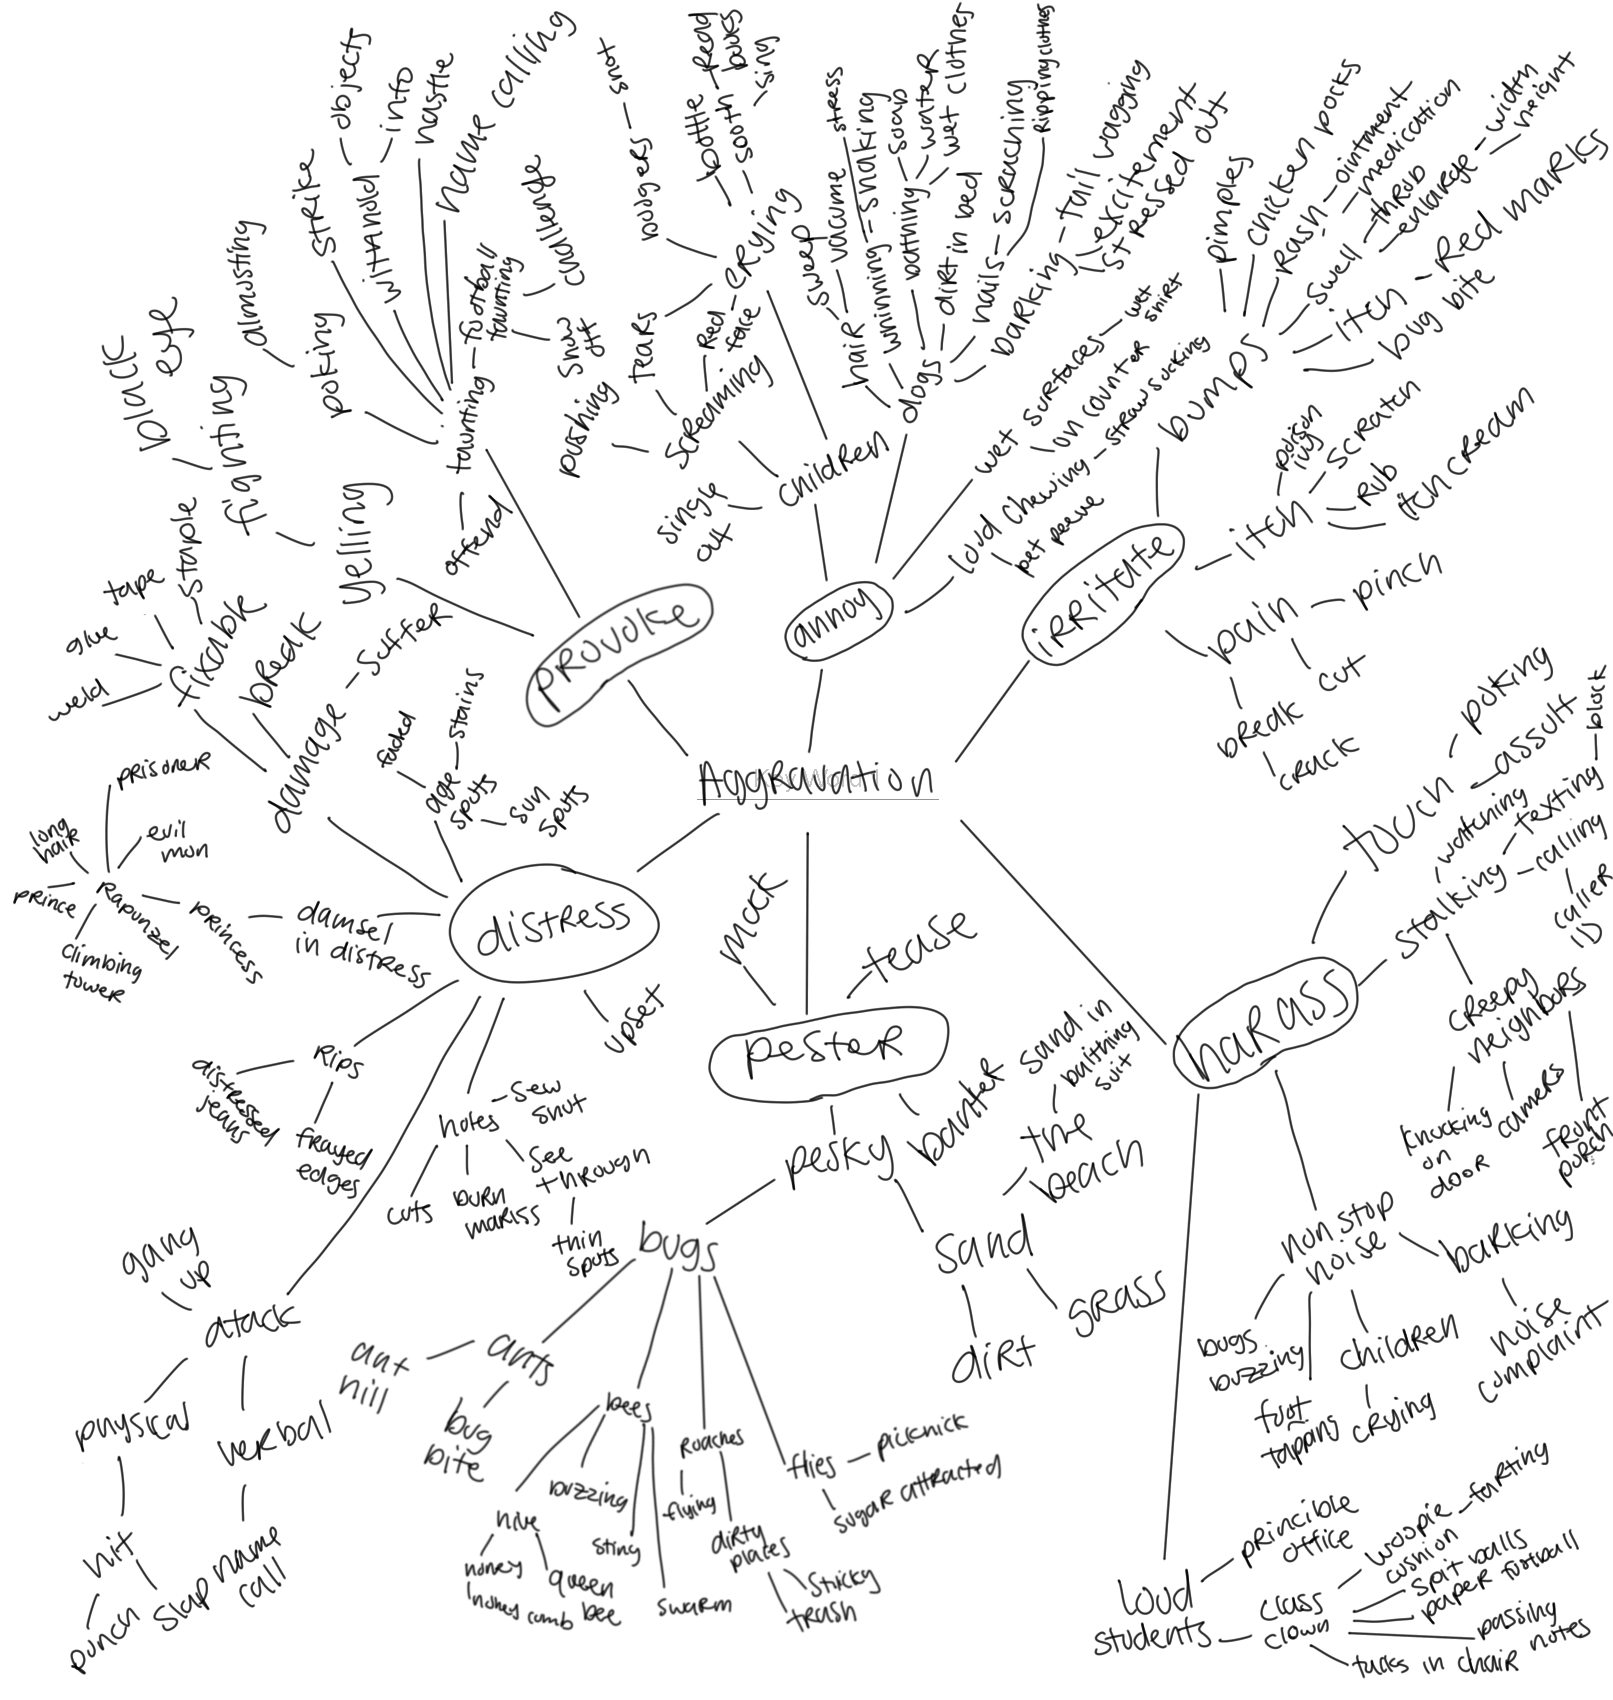 Aggravation
provoke
yelling
fighting
black
eye
taunting
poking
almosting
strike
withhold
objects
info
hastle
name calling
football
taunting
challenge
show
off
offend
annoy
children
single
out
screaming
pushing
tears
red
face
crying
boogers
snot
bottle
sooth
read
books
sing
dogs
hair
sweep
vacume
whinning
stress
shaking
bathing
soap
water
wet clothes
dirt in bed
nails
scraching
ripping clothes
barking
tail wagging
excitement
stressed out
wet surfaces
wet
shirt
on counter
loud chewing
straw sucking
pet peeve
irritate
bumps
pimples
chicken pocks
rash
ointment
medication
swell
throb
enlarge
width
height
itch
red marks
bug bite
itch
poison
ivy
scratch
rub
itch cream
pain
pinch
cut
break
crack
harass
touch
poking
assult
stalking
watching
texting
block
calling
caller
ID
creepy
neighbors
knocking
on
door
camers
front
porch
non stop
noise
barking
noise
complaint
children
crying
foot
tapping
bugs
buzzing
loud
students
princible
office
class
clown
woopie
cushion
farting
spit balls
paper football
passing
notes
tacks in chair
pester
mock
tease
banter
pesky
sand
the
beach
sand in
baithing
suit
grass
dirt
bugs
ants
ant
hill
bug
bite
bees
hive
honey
honey comb
queen
bee
buzzing
sting
swarm
roaches
flying
dirty
places
sticky
trash
flies
picknick
sugar attracted
distress
upset
holes
sew
shut
see
through
thin
spots
burn
marks
cuts
rips
distressed
jeans
frayed
edges
atack
gang
up
physical
hit
punch
slap
verball
name
call
damsel
in distress
princess
Rapunzel
prisoner
evil
mom
long
hair
prince
climbing
tower
age
spots
faded
stains
sun
spots
damage
suffer
break
fixable
staple
tape
glue
weld